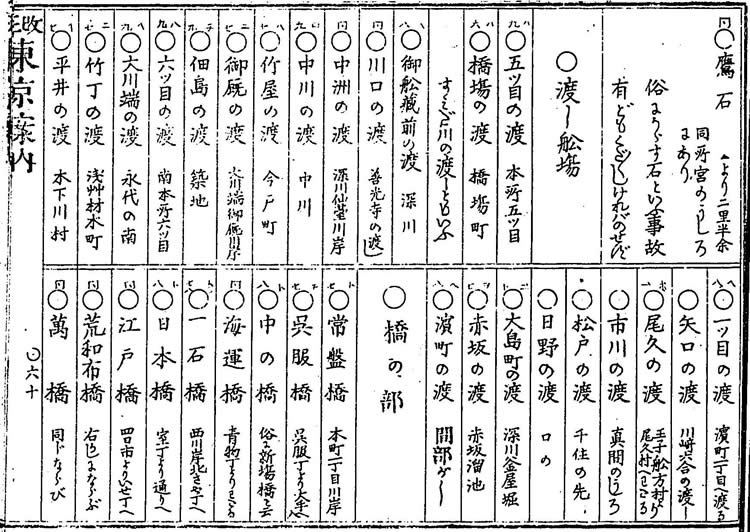 ○鷹石
▲より二里半余
同所宮のうしろ
にあり
俗にからす石といふ事故
有どもくだくだしければのせず
○渡し舩場
○五ツ目の渡 本所五ツ目
○橋場の渡 橋場町
すみだ川の渡しともいふ
○御舩蔵前の渡 深川
○川口の渡 善光寺の渡し
○中洲の渡 深川仙臺川岸
○中川の渡 中川
○竹屋の渡 今戸町
○御厩の渡 大川端御厩川岸
○佃島の渡 築地
○六ツ目の渡 南本所六ツ目
○大川端の渡 永代の南
○竹丁の渡 浅艸材木町
○平井の渡 木下川村
○一ツ目の渡 濱町二丁目へ渡る
○矢口の渡 川﨑六合の渡し
○尾久の渡 王子舩方村より
尾久村へわたる
○市川の渡 真間のしろ
○松戸の渡 千住の先
○日野の渡 口の
○大島町の渡 深川釜屋堀
○赤坂の渡 赤坂溜池
○濱町の渡 間部がし
○橋の部
○常盤橋 本町一丁目川岸
○呉服橋 呉服丁より大手へ
○中の橋 俗に新場橋と云
○海運橋 青物丁よりわたる
○一石橋 西川岸北さや丁へ
○日本橋 室丁より通りへ
○江戸橋 四日市より小せ丁へ
○荒和布橋 右にならぶ
○萬橋 同じならび
改正東京案内
○六十